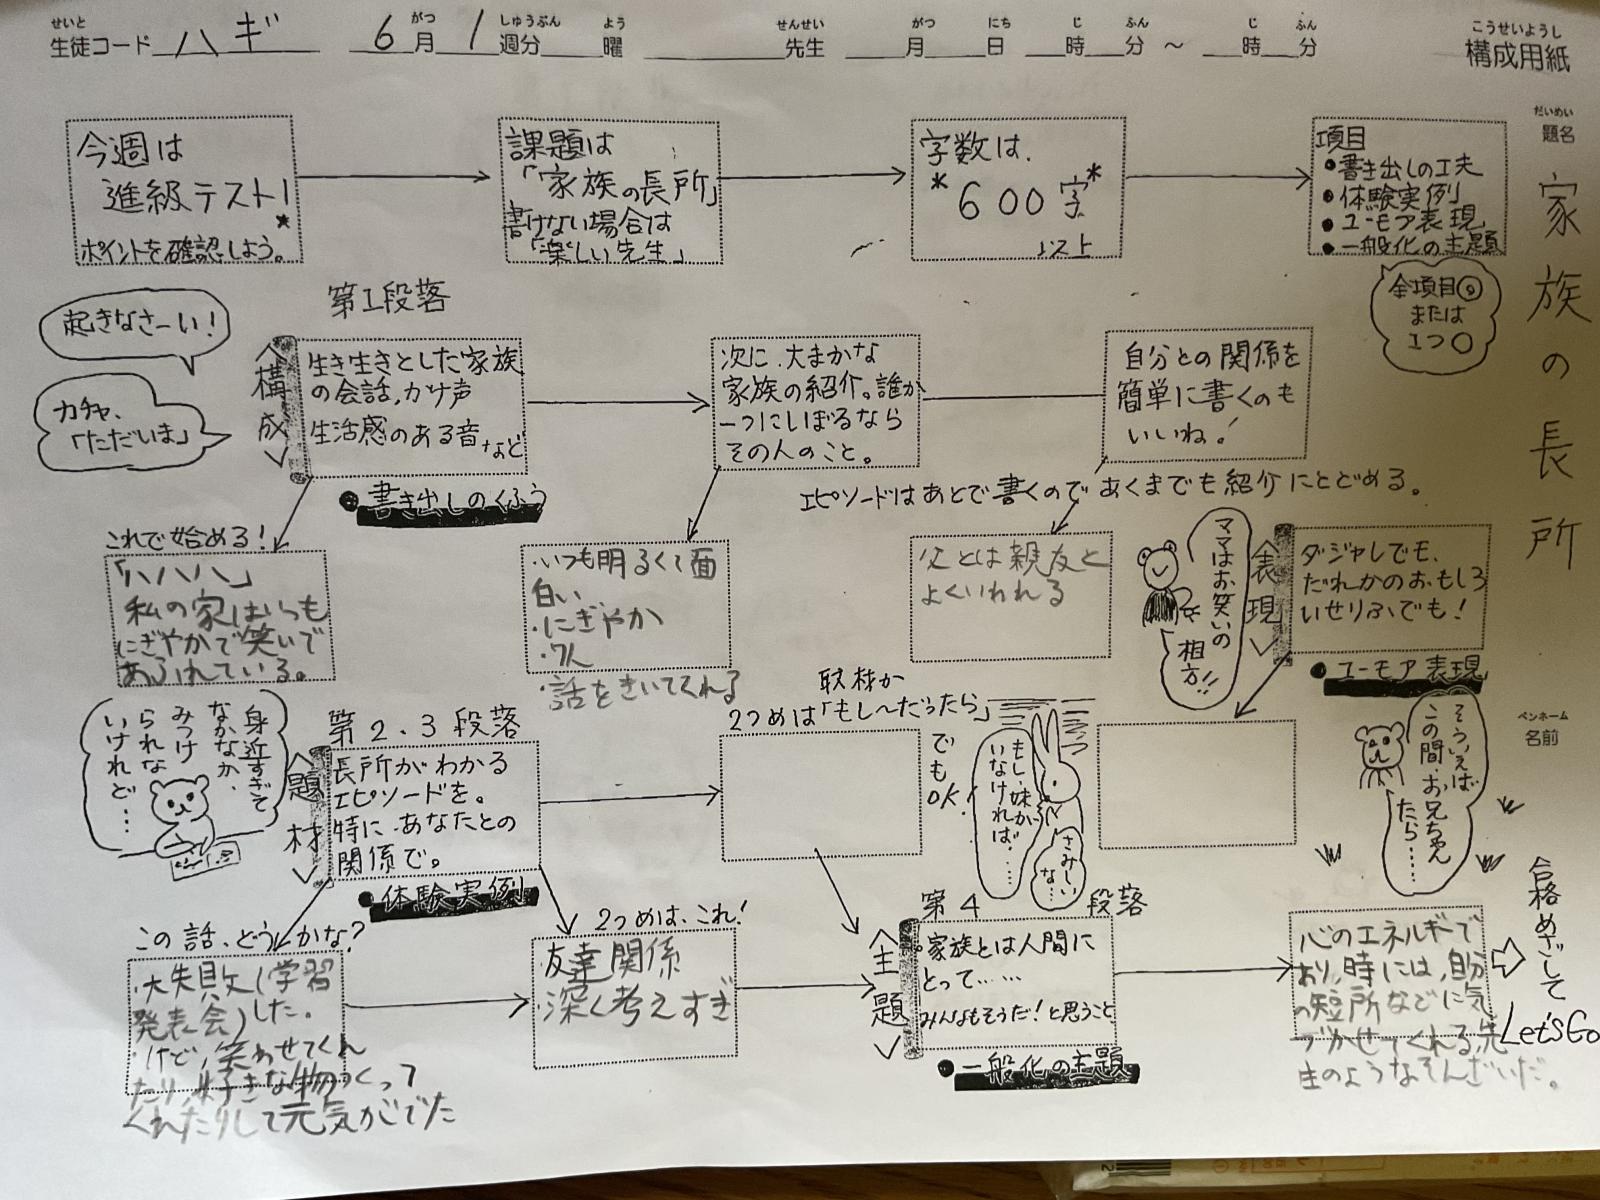 せいと がつ しゅうぶん よう せんせい がつ にち じ ふん じ ふん こうせいようし
生徒コード ハギ 6月 1週分 曜 先生 月 日 時 分 ～ 時 分 構成用紙
だいめい
題名
家族の長所
今週は
進級テスト!
ポイントを確認しよう。
課題は
「家族の長所」
書けない場合は
「楽しい先生」
字数は、
*600字*
項目
●書き出しの工夫
●体験実例
●ユーモア表現
●一般化の主題
全項目◎
または
1つ○
起きなさーい!
カチャ、
「ただいま」
第1段落
<構成>
生き生きとした家族
の会話、かけ声
生活感のある音など
●書き出しのくふう
次に、大まかな
家族の紹介。誰か
一つにしぼるなら
その人のこと。
自分との関係を
簡単に書くのも
いいね!
エピソードはあとで書くので、あくまでも紹介にとどめる。
これで始める!
「ハハハ」
私の家はいつも
にぎやかで笑いで
あふれている。
・いつも明るくて面
白い
・にぎやか
・7人
・話をきいてくれる
父とは親友と
よくいわれる
ママはお笑いの
相方!!
<表現>
ダジャレでも、
だれかのおもしろ
いせりふでも!
●ユーモア表現
そういえば
この間、お兄ちゃん
たら……
ペンネーム
名前
身近すぎて
なかなか、
みつけ
られな
いけれど…
第2.3段落
<題材>
長所がわかる
エピソードを。
特に、あなたとの
関係で。
●体験実例
取材か
2つめは「もし〜だったら」
でもOK!
もし、妹が
いなければ……
さみしい
な…
この話、どうかな?
・大失敗(学習
発表会)した。
・けど、笑わせてくれ
たり、好きな物つくって
くれたりして元気がでた
2つめは、これ!
・友達関係
・深く考えすぎ
第4段落
<主題>
・家族とは人間に
とって……
みんなもそうだ!と思うこと
●一般化の主題
心のエネルギーで
あり、時には、自分
の短所などに気
づかせてくれる先
生のようなそんざいだ。
合格めざして
Let'sGo